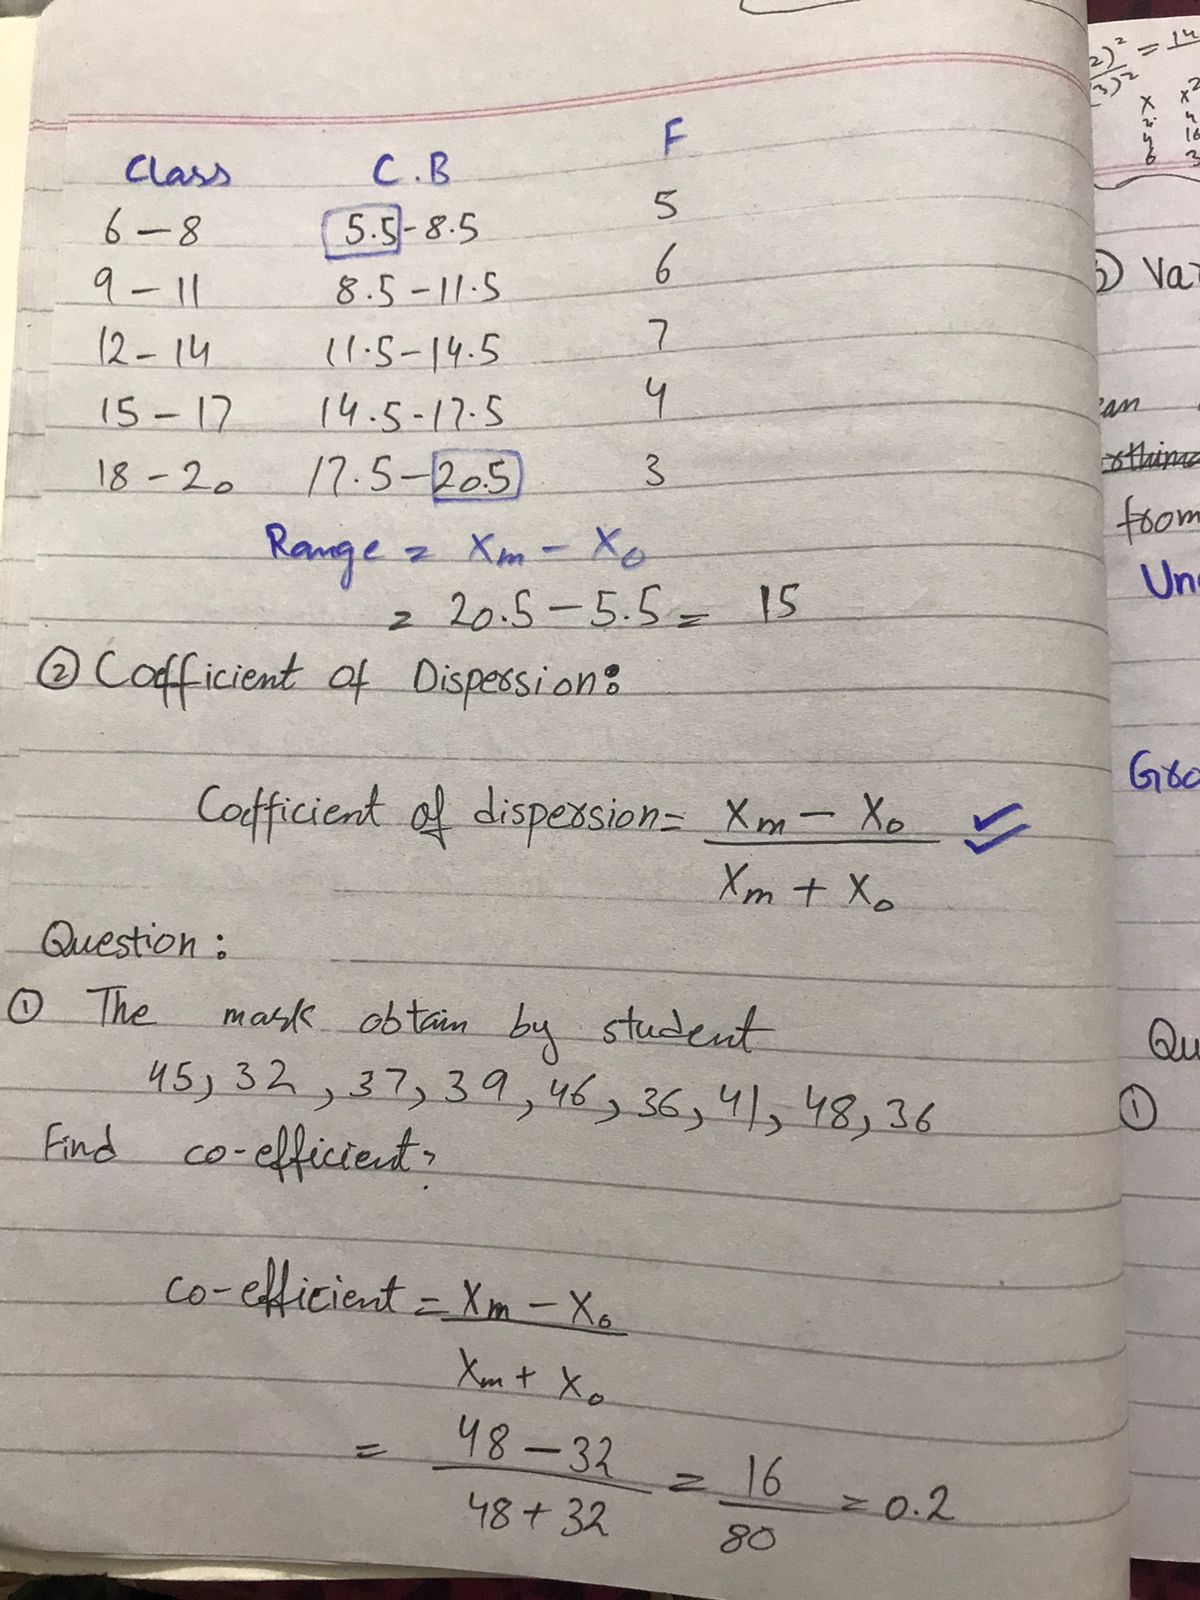 Class C.B F
6 – 8 5.5 - 8.5 5
9 – 11 8.5 – 11.5 6
12 – 14 11.5 – 14.5 7
15 – 17 14.5 - 17.5 4
18 – 20 17.5 – 20.5 3
Range = Xm – X0
= 20.5 – 5.5 = 15
② Cofficient of Dispersion:
Cofficient of dispersion = Xm – X0
Xm + X0
Question:
① The mask obtain by student
45, 32, 37, 39, 46, 36, 41, 48, 36
Find co-efficient?
co-efficient = Xm – X0
Xm + X0
= 48 – 32 = 16 = 0.2
48 + 32 80
2)² = 14
(3)²
X X²
4 16
6
from
①